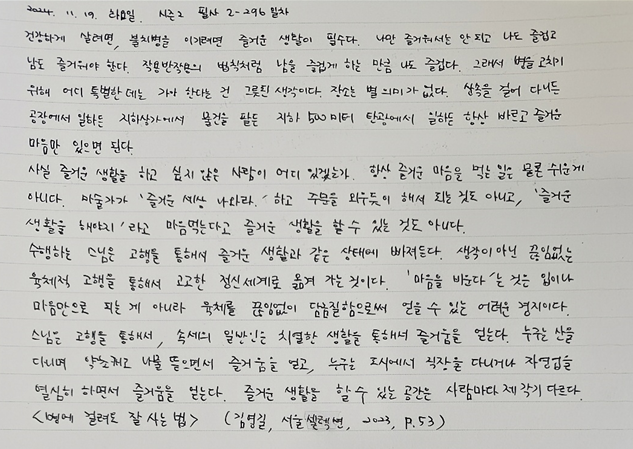 2024. 11. 19. 화요일. 시즌2 필사 2-296일차
건강하게 살려면, 불치병을 이기려면 즐거운 생활이 필수다. 나만 즐거워서는 안 되고 나도 즐겁고
남도 즐거워야 한다. 작용반작용의 법칙처럼 남을 즐겁게 하는 만큼 나도 즐겁다. 그래서 병을 고치기
위해 어디 특별한 데는 가야 한다는 건 그릇된 생각이다. 장소는 별 의미가 없다. 산속을 걸어 다니든
공장에서 일하든 지하상가에서 물건을 팔든 지하 500미터 탄광에서 일하든 항상 바르고 즐거운
마음만 있으면 된다.
사실 즐거운 생활을 하고 싶지 않은 사람이 어디 있겠는가. 항상 즐거운 마음을 먹는 일은 물론 쉬운 게
아니다. 마술가가 '즐거운 세상 나와라.' 하고 주문을 외우듯이 해서 되는 것도 아니고, '즐거운
생활을 해야지'라고 마음먹는다고 즐거운 생활을 할 수 있는 것도 아니다.
수행하는 스님은 고행을 통해서 즐거운 생활과 같은 상태에 빠져든다. 생각이 아닌 끊임없는
육체적 고행을 통해서 고고한 정신세계로 옮겨 가는 것이다. '마음을 비운다'는 것은 입이나
마음만으로 되는 게 아니라 육체를 끊임없이 담금질함으로써 얻을 수 있는 어려운 경지이다.
스님은 고행을 통해서, 속세의 일반인은 치열한 생활을 통해서 즐거움을 얻는다. 누구는 산을
다니며 약초 캐고 나물 뜯으면서 즐거움을 얻고, 누구는 도시에서 직장을 다니거나 자영업을
열심히 하면서 즐거움을 얻는다. 즐거운 생활을 할 수 있는 공간은 사람마다 제각기 다르다.
<병에 걸려도 잘 사는 법> (김영길, 서울셀렉션, 2023, p.53)